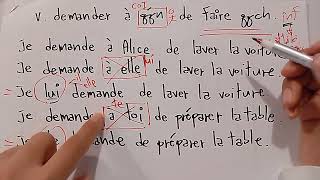 v. demander à qqn de faire qqch. inf
COI
Je demande à Alice de laver la voiture
Je demande à elle de laver la voiture
= Je lui demande de laver la voiture
Je demande à toi de préparer la table.
= Je demande de préparer la table.